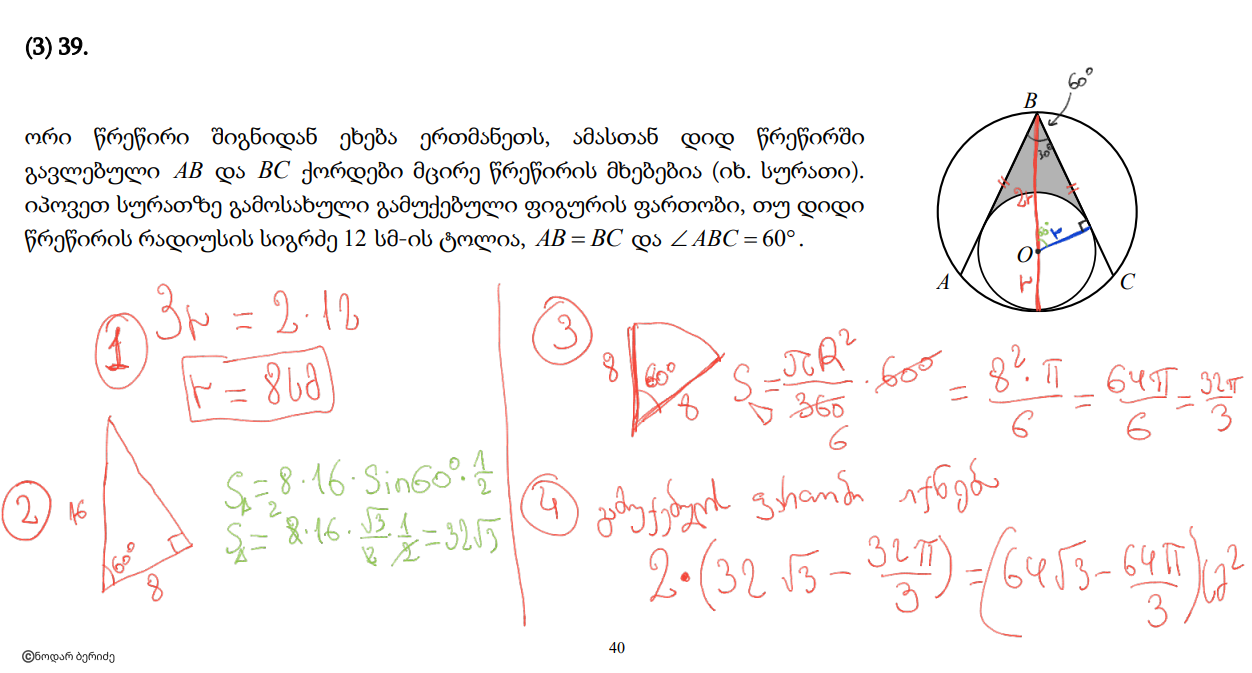 (3) 39.
ორი წრეწირი შიგნიდან ეხება ერთმანეთს, ამასთან დიდ წრეწირში
გავლებული AB და BC ქორდები მცირე წრეწირის მხებებია (იხ. სურათი).
იპოვეთ სურათზე გამოსახული გამუქებული ფიგურის ფართობი, თუ დიდი
წრეწირის რადიუსის სიგრძე 12 სმ-ის ტოლია, AB = BC და ∠ABC = 60°.
60°
B
30°
2r
60° r
O
r
A C
1 3r = 2·12
r = 8სმ
2 16 60° 8
S△ = 8·16·Sin60°·1/2
S△ = 8·16·√3/2·1/2 = 32√3
2
3 8 60° 8
S = πR²/360·60° = 8²·π/6 = 64π/6 = 32π/3
6
4 გამუქებულის ფართობი იქნება
2·(32√3 − 32π/3) = (64√3 − 64π/3) სმ²
40
©ნოდარ ბერიძე